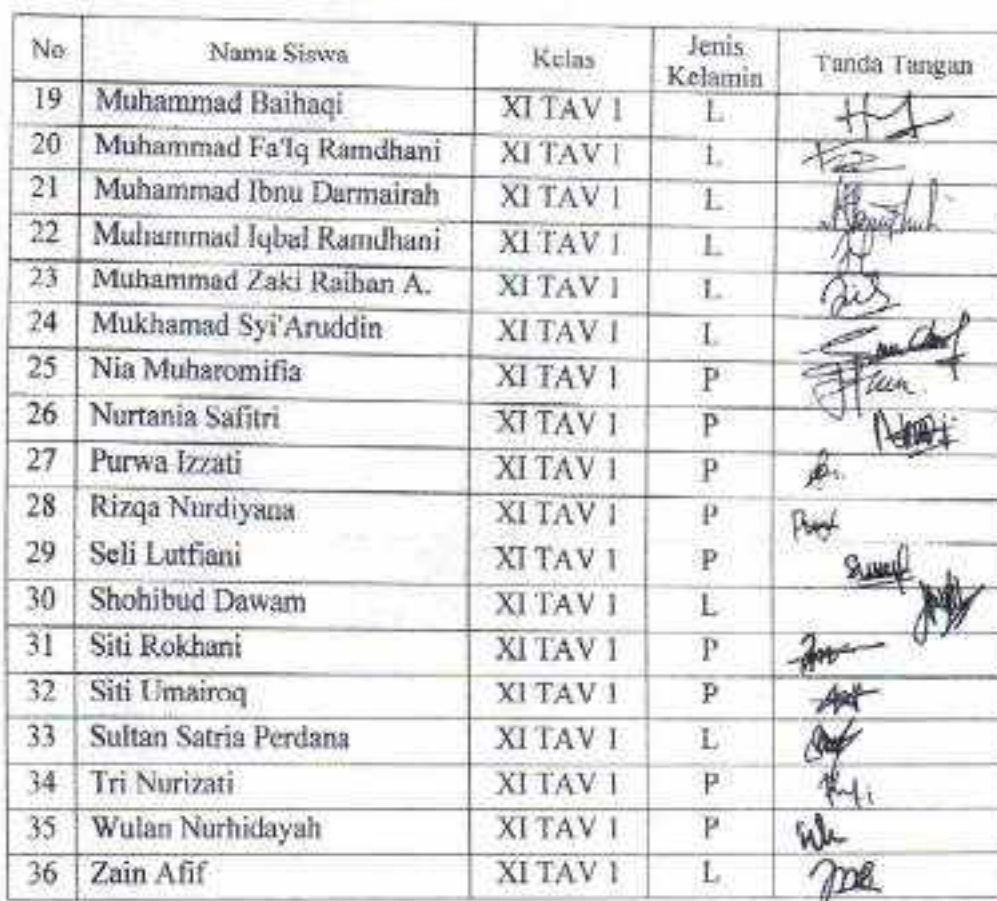 No Nama Siswa Kelas Jenis Kelamin Tanda Tangan
19 Muhammad Baihaqi XI TAV 1 L
20 Muhammad Fa'Iq Ramdhani XI TAV 1 L
21 Muhammad Ibnu Darmairah XI TAV 1 L
22 Muhammad Iqbal Ramdhani XI TAV 1 L
23 Muhammad Zaki Raihan A. XI TAV 1 L
24 Mukhamad Syi'Aruddin XI TAV 1 L
25 Nia Muharomifia XI TAV 1 P
26 Nurtania Safitri XI TAV 1 P
27 Purwa Izzati XI TAV 1 P
28 Rizqa Nurdiyana XI TAV 1 P
29 Seli Lutfiani XI TAV 1 P
30 Shohibud Dawam XI TAV 1 L
31 Siti Rokhani XI TAV 1 P
32 Siti Umairoq XI TAV 1 P
33 Sultan Satria Perdana XI TAV 1 L
34 Tri Nurizati XI TAV 1 P
35 Wulan Nurhidayah XI TAV 1 P
36 Zain Afif XI TAV 1 L